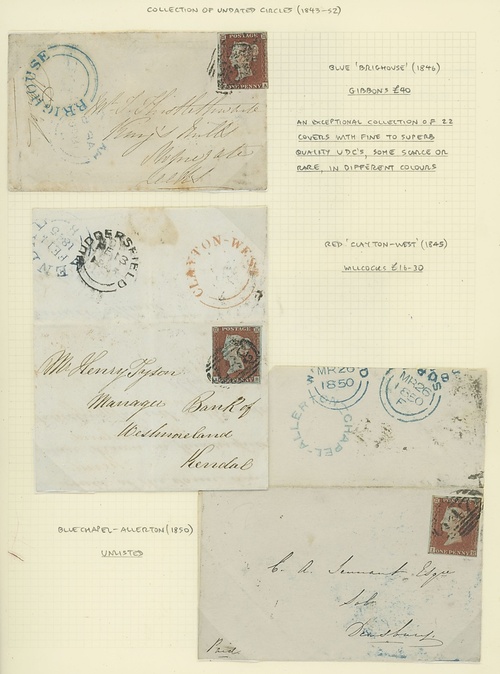 COLLECTION OF UNDATED CIRCLES (1843-52)
BRIGHOUSE
BRIGHOUSE
POSTAGE
BLUE 'BRIGHOUSE' (1846)
GIBBONS £40
AN EXCEPTIONAL COLLECTION OF 22
COVERS WITH FINE TO SUPERB
QUALITY UDC'S, SOME SCARCE OR
RARE, IN DIFFERENT COLOURS
Leeds
HUDDERSFIELD
CLAYTON-WEST
RED 'CLAYTON-WEST' (1845)
WILLCOCKS £16-30
POSTAGE
Mr Henry Tyson
Manager Bank of
Westmoreland
Kendal
MR 26
1850
MR 26
1850
CHAPEL-ALLERTON
BLUE CHAPEL-ALLERTON (1850)
UNLISTED
ONE PENNY
C. A. Tennant Esqre
Paid